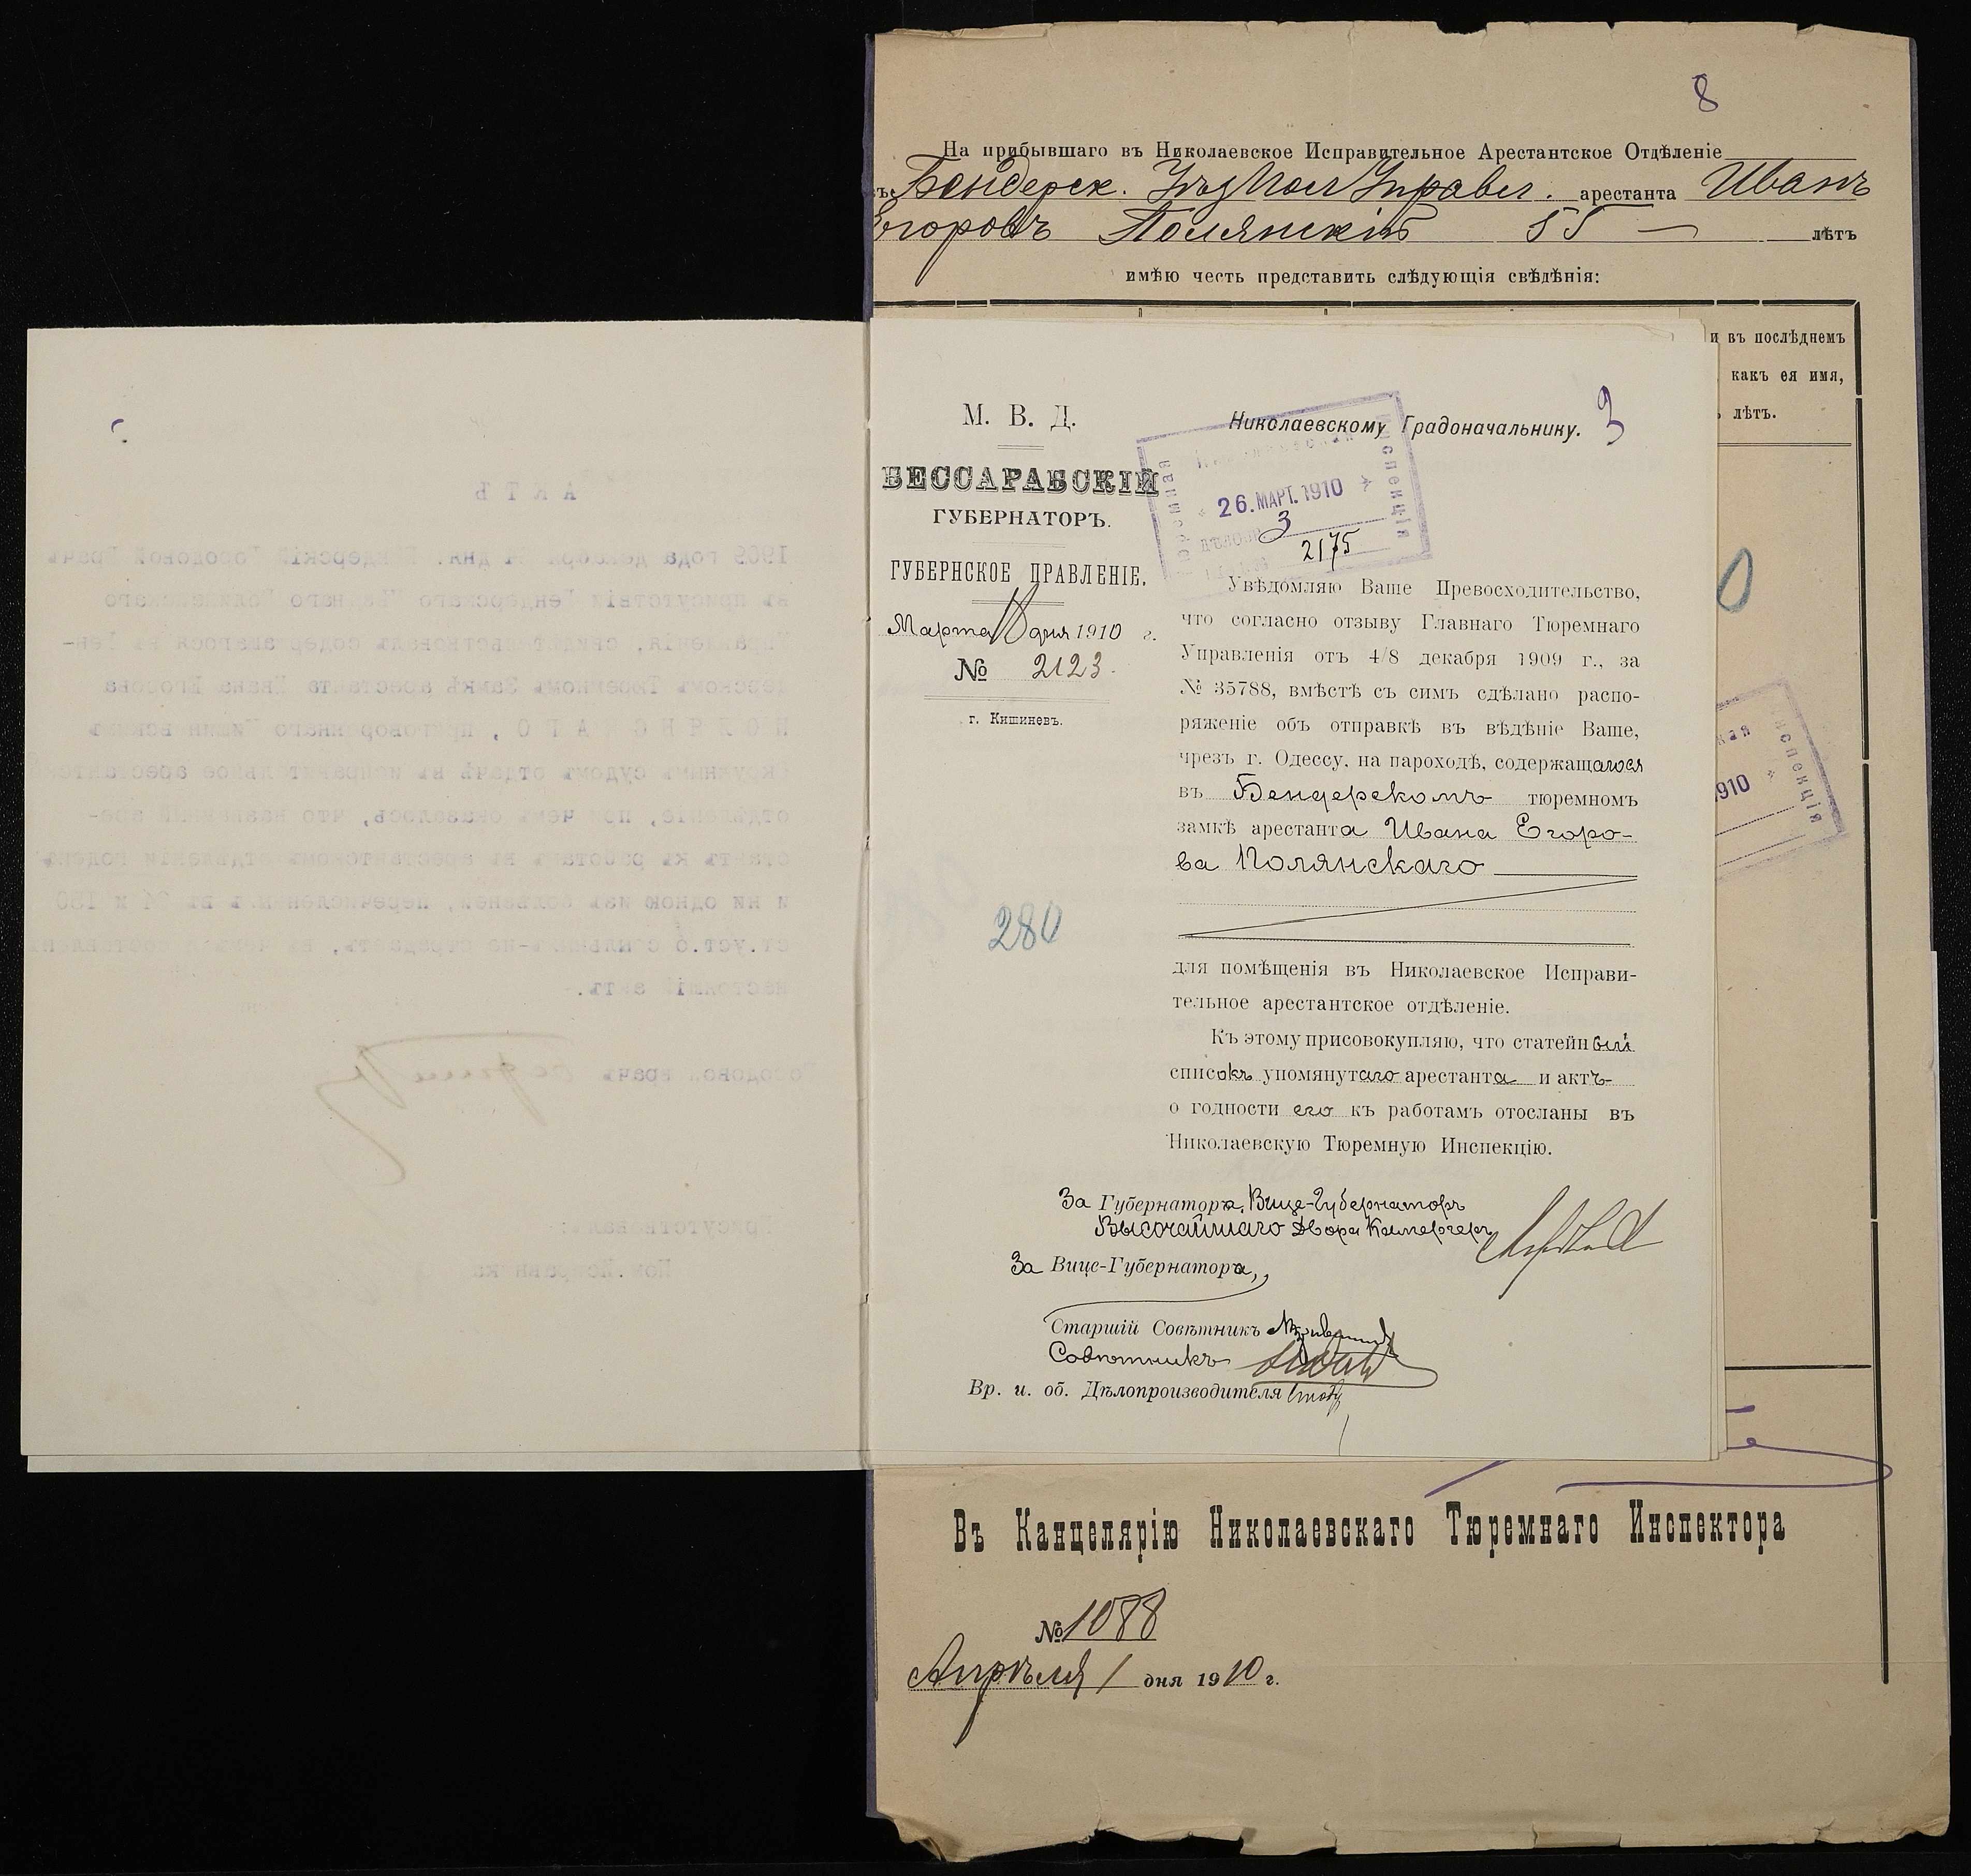 8
На прибывшаго въ Николаевское Исправительное Арестантское Отдѣленіе
Бендерск. Уѣз Пол Управл. арестанта Иванъ
Егоровъ Полянскій 55 — лѣтъ
имѣю честь представить слѣдующія свѣдѣнія:
и въ послѣднемъ
какъ ея имя,
лѣтъ.
М. В. Д.
БЕССАРАБСКІЙ
ГУБЕРНАТОРЪ.
ГУБЕРНСКОЕ ПРАВЛЕНІЕ.
Марта дня 1910 г.
№ 2123.
г. Кишиневъ.
280
Николаевскому Градоначальнику.
3
Инспекція
26. МАРТ. 1910
3
2175
Увѣдомляю Ваше Превосходительство,
что согласно отзыву Главнаго Тюремнаго
Управленія отъ 4/8 декабря 1909 г., за
№ 35788, вмѣстѣ съ симъ сдѣлано распо-
ряженіе объ отправкѣ въ вѣдѣніе Ваше,
чрезъ г. Одессу, на пароходѣ, содержащагося
въ Бендерскомъ тюремномъ
замкѣ арестанта Ивана Егоро-
ва Полянскаго
для помѣщенія въ Николаевское Исправи-
тельное арестантское отдѣленіе.
Къ этому присовокупляю, что статейный
списокъ упомянутаго арестанта и актъ
о годности его къ работамъ отосланы въ
Николаевскую Тюремную Инспекцію.
За Губернатора, Вице-Губернаторъ
Высочайшаго Двора Камергеръ
За Вице-Губернатора,
Старшій Совѣтникъ
Совѣтникъ
Вр. и. об. Дѣлопроизводителя
кая
Инспекція
1910
Въ Канцелярію Николаевскаго Тюремнаго Инспектора
№ 1088
Апрѣля 1 дня 1910 г.
АКТЪ
1909 года декабря дня. Бендерскій Городовой Врачъ
въ присутствіи Бендерскаго Уѣзднаго Полицейскаго
Управленія, свидѣтельствовалъ содержащагося въ Бен-
дерскомъ Тюремномъ Замкѣ арестанта Ивана Егорова
ПОЛЯНСКАГО, приговореннаго Кишиневскимъ
Окружнымъ судомъ отдачѣ въ исправительное арестантское
отдѣленіе, при чемъ оказалось, что названный аре-
стантъ къ работамъ въ арестантскомъ отдѣленіи годенъ
и ни одною изъ болѣзней, перечисленныхъ въ
ст. уст. о ссыльныхъ-не страдаетъ, въ чемъ и составленъ
настоящій актъ.-
Городовой врачъ
Присутствовалъ:
Пом. Исправника